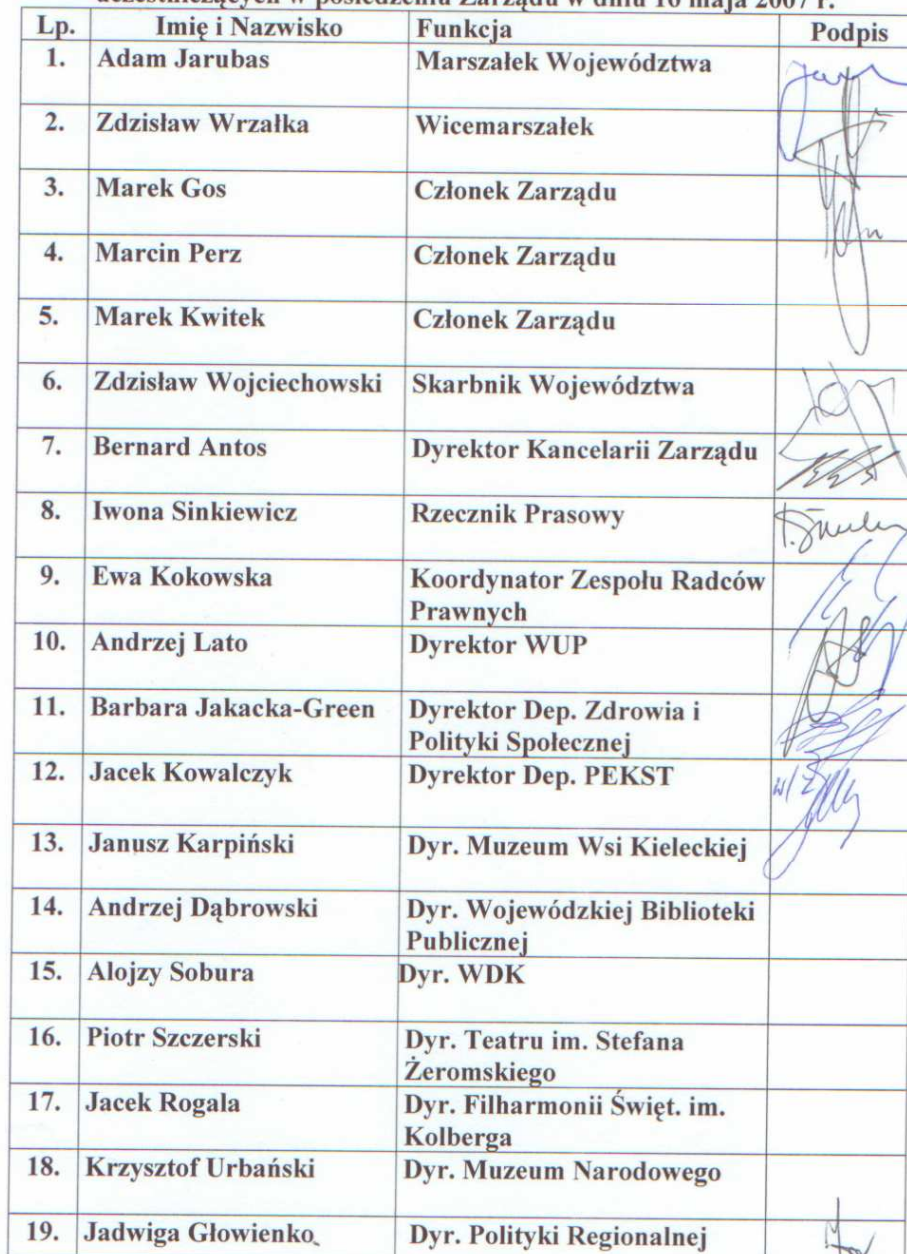 uczestniczących w posiedzeniu Zarządu w dniu 16 maja 2007 r.
Lp. Imię i Nazwisko Funkcja Podpis
1. Adam Jarubas Marszałek Województwa
2. Zdzisław Wrzałka Wicemarszałek
3. Marek Gos Członek Zarządu
4. Marcin Perz Członek Zarządu
5. Marek Kwitek Członek Zarządu
6. Zdzisław Wojciechowski Skarbnik Województwa
7. Bernard Antos Dyrektor Kancelarii Zarządu
8. Iwona Sinkiewicz Rzecznik Prasowy
9. Ewa Kokowska Koordynator Zespołu Radców
Prawnych
10. Andrzej Lato Dyrektor WUP
11. Barbara Jakacka-Green Dyrektor Dep. Zdrowia i
Polityki Społecznej
12. Jacek Kowalczyk Dyrektor Dep. PEKST
13. Janusz Karpiński Dyr. Muzeum Wsi Kieleckiej
14. Andrzej Dąbrowski Dyr. Wojewódzkiej Biblioteki
Publicznej
15. Alojzy Sobura Dyr. WDK
16. Piotr Szczerski Dyr. Teatru im. Stefana
Żeromskiego
17. Jacek Rogala Dyr. Filharmonii Święt. im.
Kolberga
18. Krzysztof Urbański Dyr. Muzeum Narodowego
19. Jadwiga Głowienko Dyr. Polityki Regionalnej